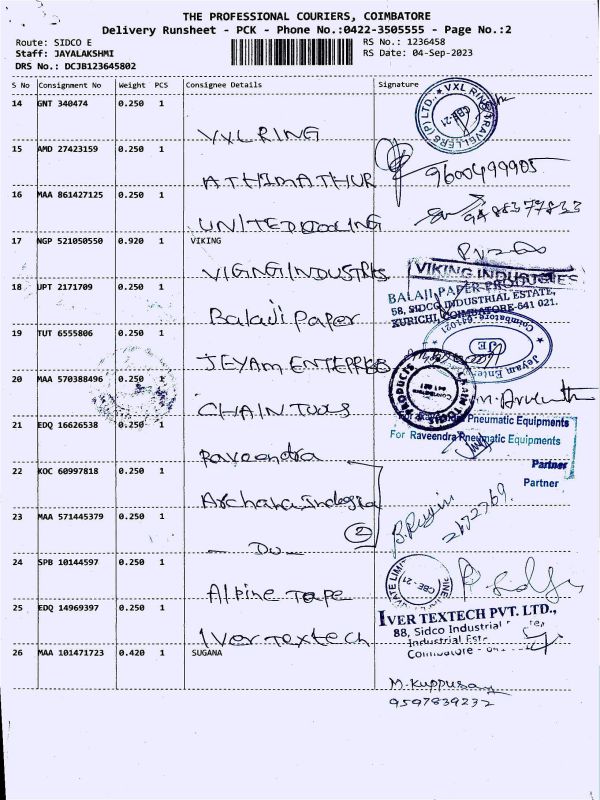 THE PROFESSIONAL COURIERS, COIMBATORE
Delivery Runsheet - PCK - Phone No.:0422-3505555 - Page No.:2
Route: SIDCO E
RS No.: 1236458
Staff: JAYALAKSHMI
RS Date: 04-Sep-2023
DRS No.: DCJB123645802
S No Consignment No Weight PCS Consignee Details Signature
14 GNT 340474 0.250 1
VXL RING
VXL RING TRAVELLERS (P) LTD. CBE-21
15 AMD 27423159 0.250 1
ATHIMATHUR
9600499905
16 MAA 861427125 0.250 1
UNITED COOLING
9488377833
17 NGP 520150550 0.920 1 VIKING
VIGNG INDUSTRIS
VIKING INDUSTRIES
18 UPT 2171709 0.250 1
Balaji Paper
BALAJI PAPER PRODUCTS
58, SIDCO INDUSTRIAL ESTATE,
KURICHI, COIMBATORE-641 021.
19 TUT 6555806 0.250 1
JEYAM ENTERPRISES
Jeyam Enter
JE
Coimbatore
20 MAA 570388496 0.250 1
CHAIN TOOLS
CHAIN TOOLS PRODUCTS
21 EDQ 16626538 1
Raveendra
Pneumatic Equipments
For Raveendra Pneumatic Equipments
Partner
Partner
22 KOC 60997818 0.250 1
Archana
2
2172769.
23 MAA 571445379 0.250 1
- Do -
24 SPB 10144597 0.250 1
Alpine Tape
CBE - 21
25 EDQ 14969397 0.250 1
Iver Textech
IVER TEXTECH PVT. LTD.,
88, Sidco Industrial
Industrial Est
26 MAA 101471723 0.420 1 SUGANA
M. Kuppusay
9597839232